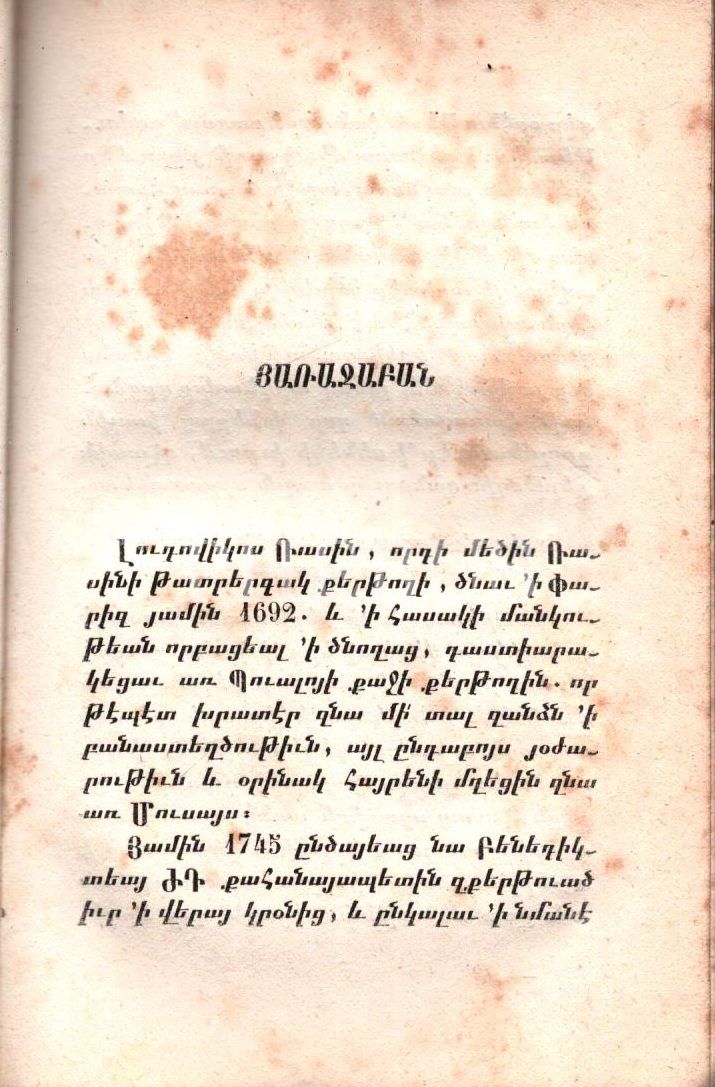 ՅԱՌԱՋԱԲԱՆ
Լուդովիկոս Ռասին, որդի մեծին Ռա-
սինի թատրերգակ քերթողի, ծնաւ ՚ի փա-
րիզ յամին 1692. և ՚ի հասակի մանկու-
թեան որբացեալ ՚ի ծնողաց, դաստիարա-
կեցաւ առ Պուալոյի քաջի քերթողին. որ
թէպէտ խրատէր զնա մի՛ տալ զանձն ՚ի
բանաստեղծութիւն, այլ ընդաբոյս յօժա-
րութիւն և օրինակ հայրենի մղեցին զնա
առ Մուսայս։
Յամին 1745 ընծայեաց նա Բենեդիկ-
տեայ ԺԴ քահանայապետին զքերթուած
իւր ՚ի վերայ կրօնից, և ընկալաւ ՚ի նմանէ